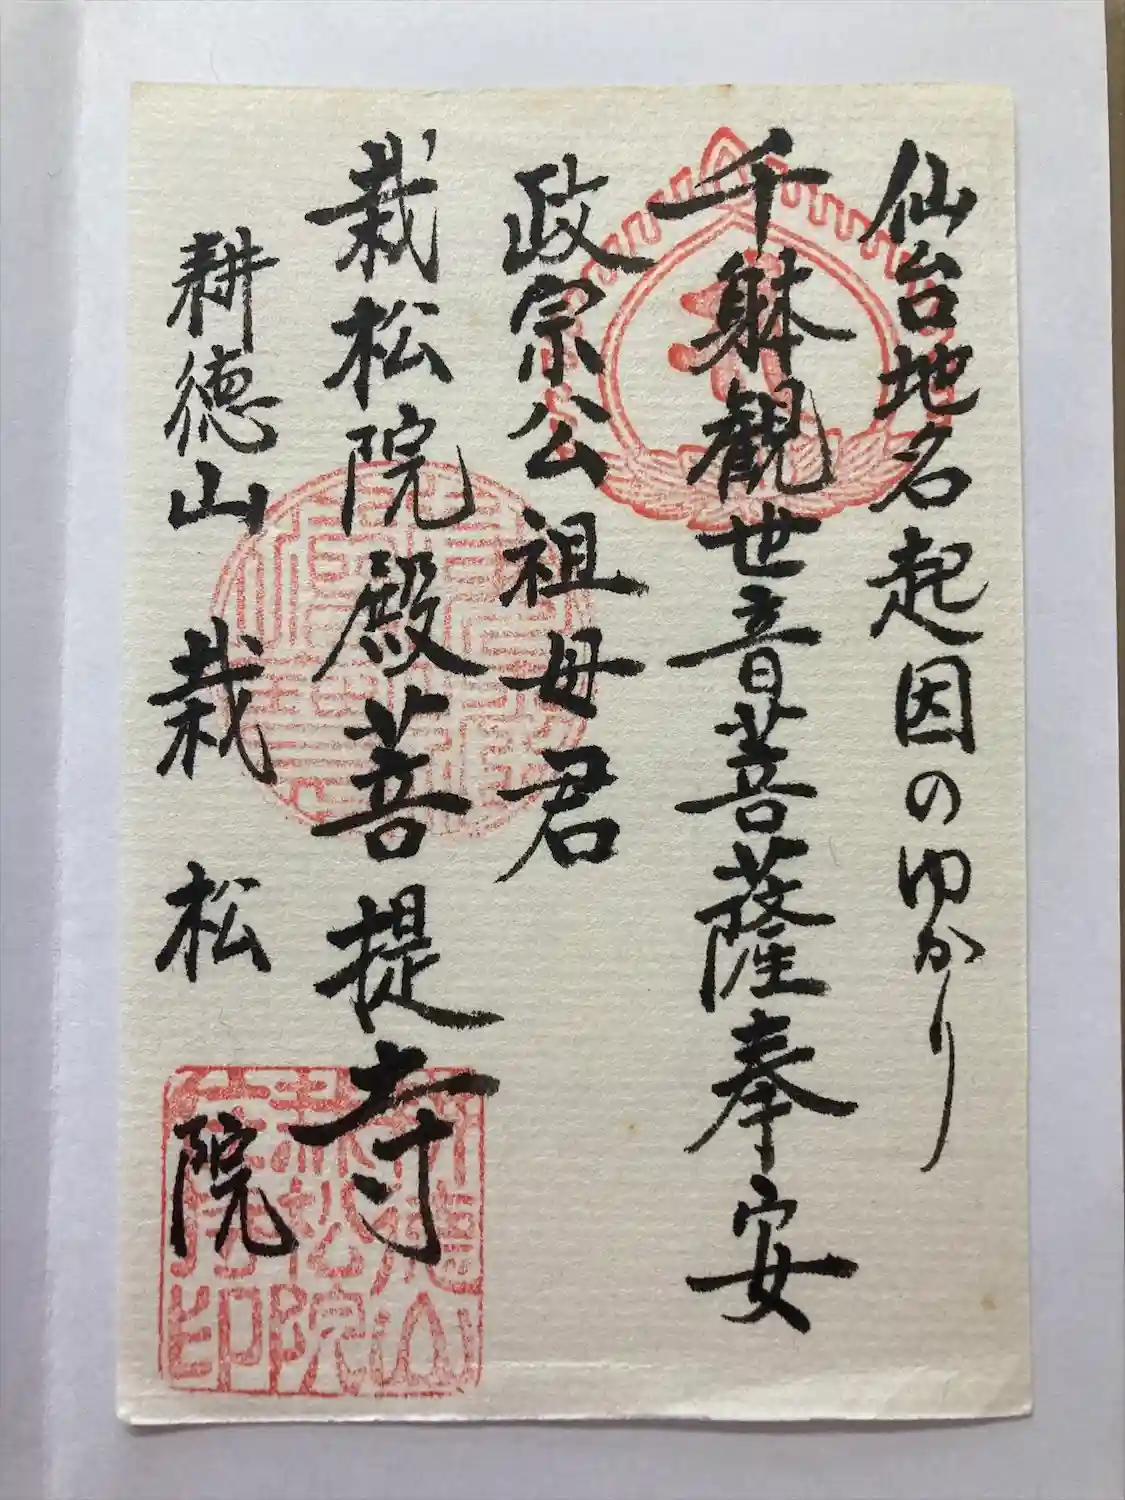 仙台地名起因のゆかり
千躰観世音菩薩奉安
政宗公 祖母君
栽松院殿菩提寺
耕徳山 栽松院